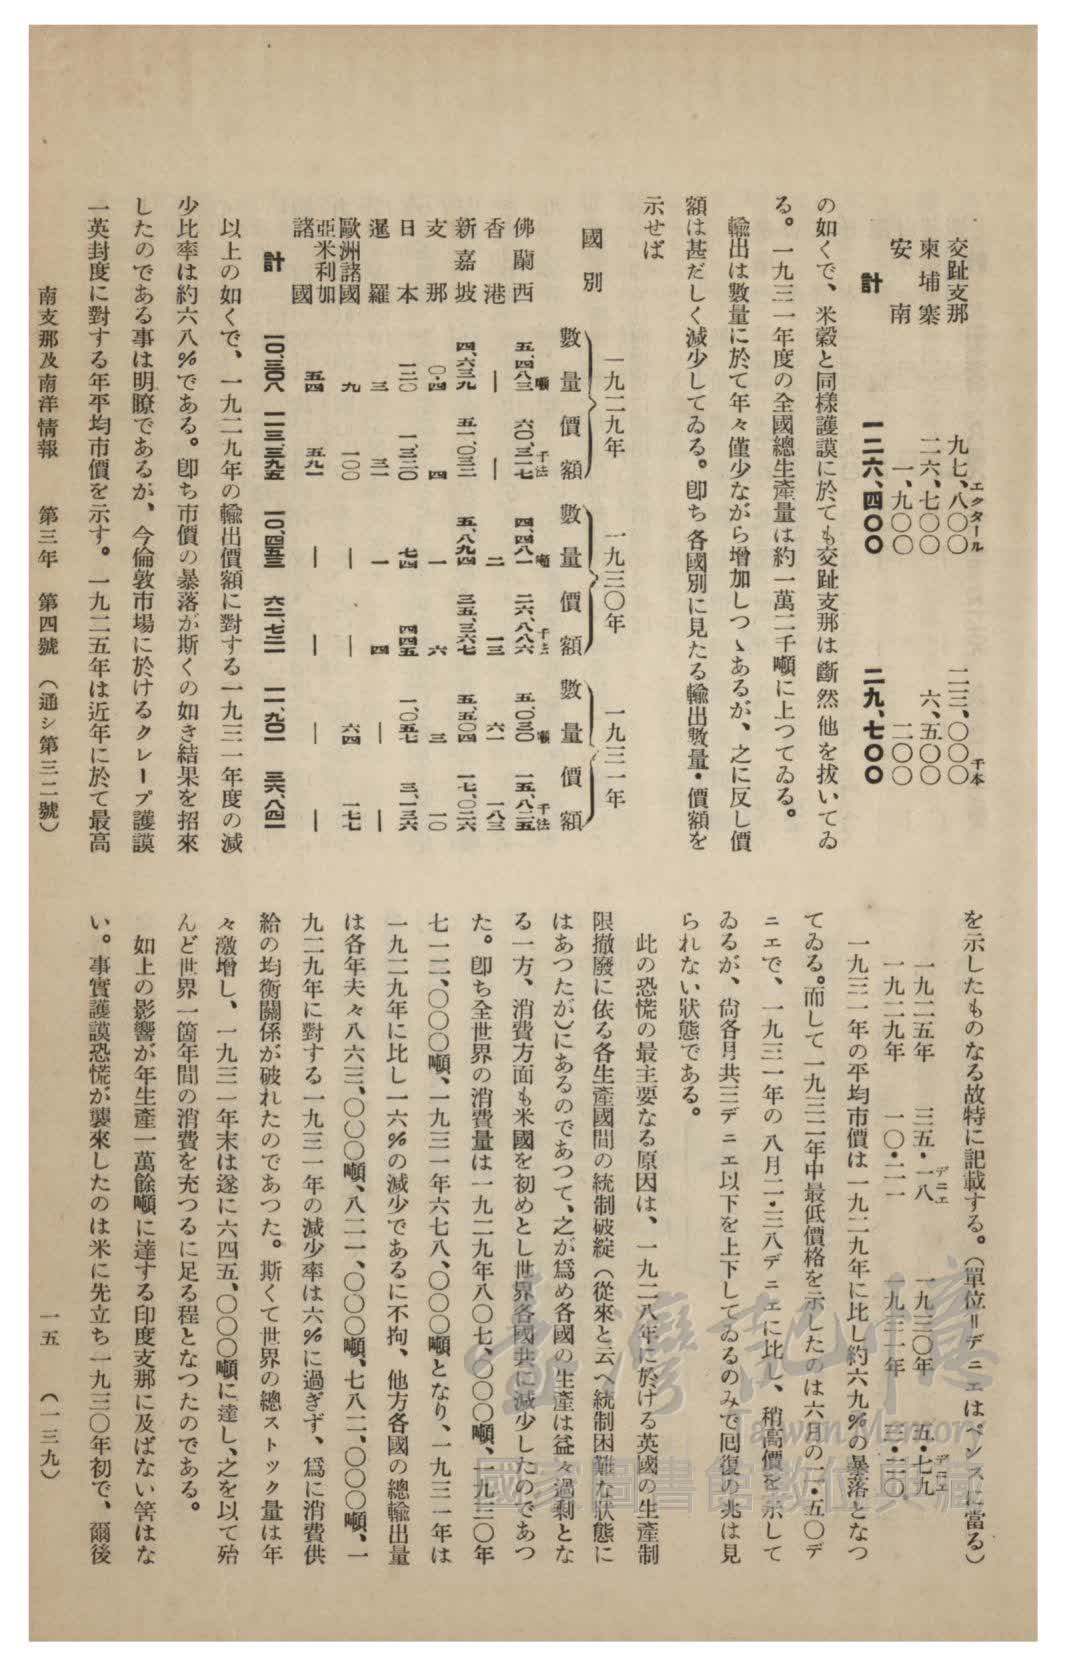 交趾支那 九七、八〇〇エクタール 二三、〇〇〇千本
柬埔寨 二六、七〇〇 六、五〇〇
安南 一、九〇〇 二〇〇
計 一二六、四〇〇 二九、七〇〇
の如くで、米穀と同樣護謨に於ても交趾支那は斷然他を拔いてゐ
る。一九三一年度の全國總生產量は約一萬二千噸に上つてゐる。
輸出は數量に於て年々僅少ながら增加しつゝあるが、之に反し價
額は甚だしく減少してゐる。卽ち各國別に見たる輸出數量・價額を
示せば
國別 一九二九年 一九三〇年 一九三一年
數量 價額 數量 價額 數量 價額
佛蘭西 五、四八三噸 六〇、三一七千法 四、四八一噸 二六、八八六千法 五、〇三〇噸 一五、八二五千法
香港 — — 二 一三 六一 一八三
新嘉坡 四、六三九 五一、〇三二 五、八九四 三五、三六七 五、五〇四 一七、〇二六
支那 〇・四 四 一 六 三 一〇
日本 一二〇 一、三二〇 七四 四四五 一、〇五七 三、一三六
暹羅 三 三一 一 四 — —
歐洲諸國 九 一〇〇 — — 六四 一七七
亞米利加諸國 五四 五九一 — — — —
計 一〇、三〇八 一一三、三九五 一〇、四五三 六二、七二一 一一、九〇一 三六、八四一
以上の如くで、一九二九年の輸出價額に對する一九三一年度の減
少比率は約六八％である。卽ち市價の暴落が斯くの如き結果を招來
したのである事は明瞭であるが、今倫敦市場に於けるクレープ護謨
一英封度に對する年平均市價を示す。一九二五年は近年に於て最高
を示したものなる故特に記載する。（單位＝デニエはペンスに當る）
一九二五年 三五・一八デニエ 一九三〇年 五・七九デニエ
一九二九年 一〇・二一 一九三一年 三・二〇
一九三一年の平均市價は一九二九年に比し約六九％の暴落となつ
てゐる。而して一九三二年中最低價格を示したのは六月の一・五〇デ
ニエで、一九三一年の八月二・三八デニエに比し、稍高價を示して
ゐるが、尙各月共三デニエ以下を上下してゐるのみで囘復の兆は見
られない狀態である。
此の恐慌の最主要なる原因は、一九二八年に於ける英國の生產制
限撤廢に依る各生產國間の統制破綻（從來と云へ統制困難な狀態に
はあつたが）にあるのであつて、之が爲め各國の生產は益々過剩とな
る一方、消費方面も米國を初めとし世界各國共に減少したのであつ
た。卽ち全世界の消費量は一九二九年八〇七、〇〇〇噸、一九三〇年
七一二、〇〇〇噸、一九三一年六七八、〇〇〇噸となり、一九三一年は
一九二九年に比し一六％の減少であるに不拘、他方各國の總輸出量
は各年夫々八六三、〇〇〇噸、八二一、〇〇〇噸、七八二、〇〇〇噸、一
九二九年に對する一九三一年の減少率は六％に過ぎず、爲に消費供
給の均衡關係が破れたのであつた。斯くて世界の總ストック量は年
々激增し、一九三一年末は遂に六四五、〇〇〇噸に達し、之を以て殆
んど世界一箇年間の消費を充つるに足る程となつたのである。
如上の影響が年生產一萬餘噸に達する印度支那に及ばない筈はな
い。事實護謨恐慌が襲來したのは米に先立ち一九三〇年初で、爾後
南支那及南洋情報 第三年 第四號 （通シ第三二號） 一五 （一三九）
臺灣記憶
Taiwan Memory
國家圖書館數位典藏